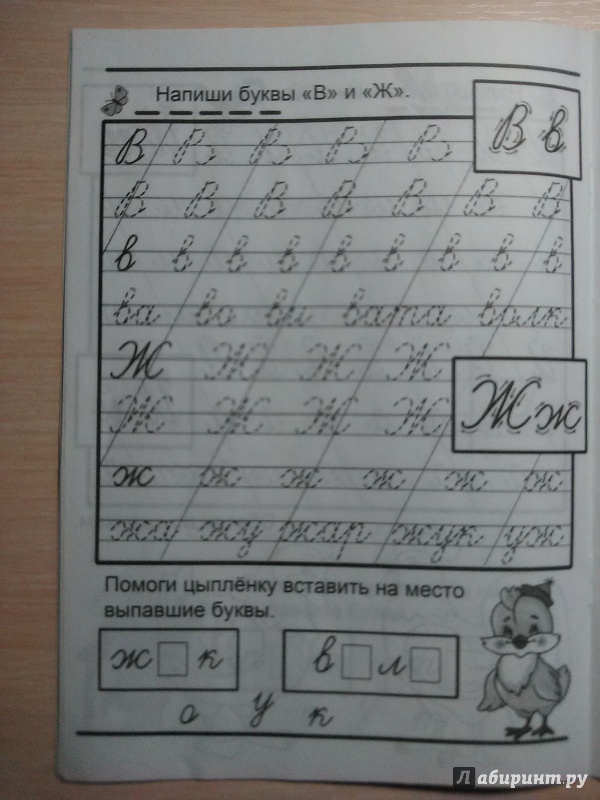 Напиши буквы «В» и «Ж».
В в
В В В В В
В В В В В В В
в в в в в в в в в
ва во ви вата волк
Ж Ж Ж Ж
Ж ж
Ж Ж Ж Ж
ж ж ж ж ж ж
жа жу жар жук уж
Помоги цыплёнку вставить на место
выпавшие буквы.
ж □ к в □ л □
о у к
Лабиринт.ру